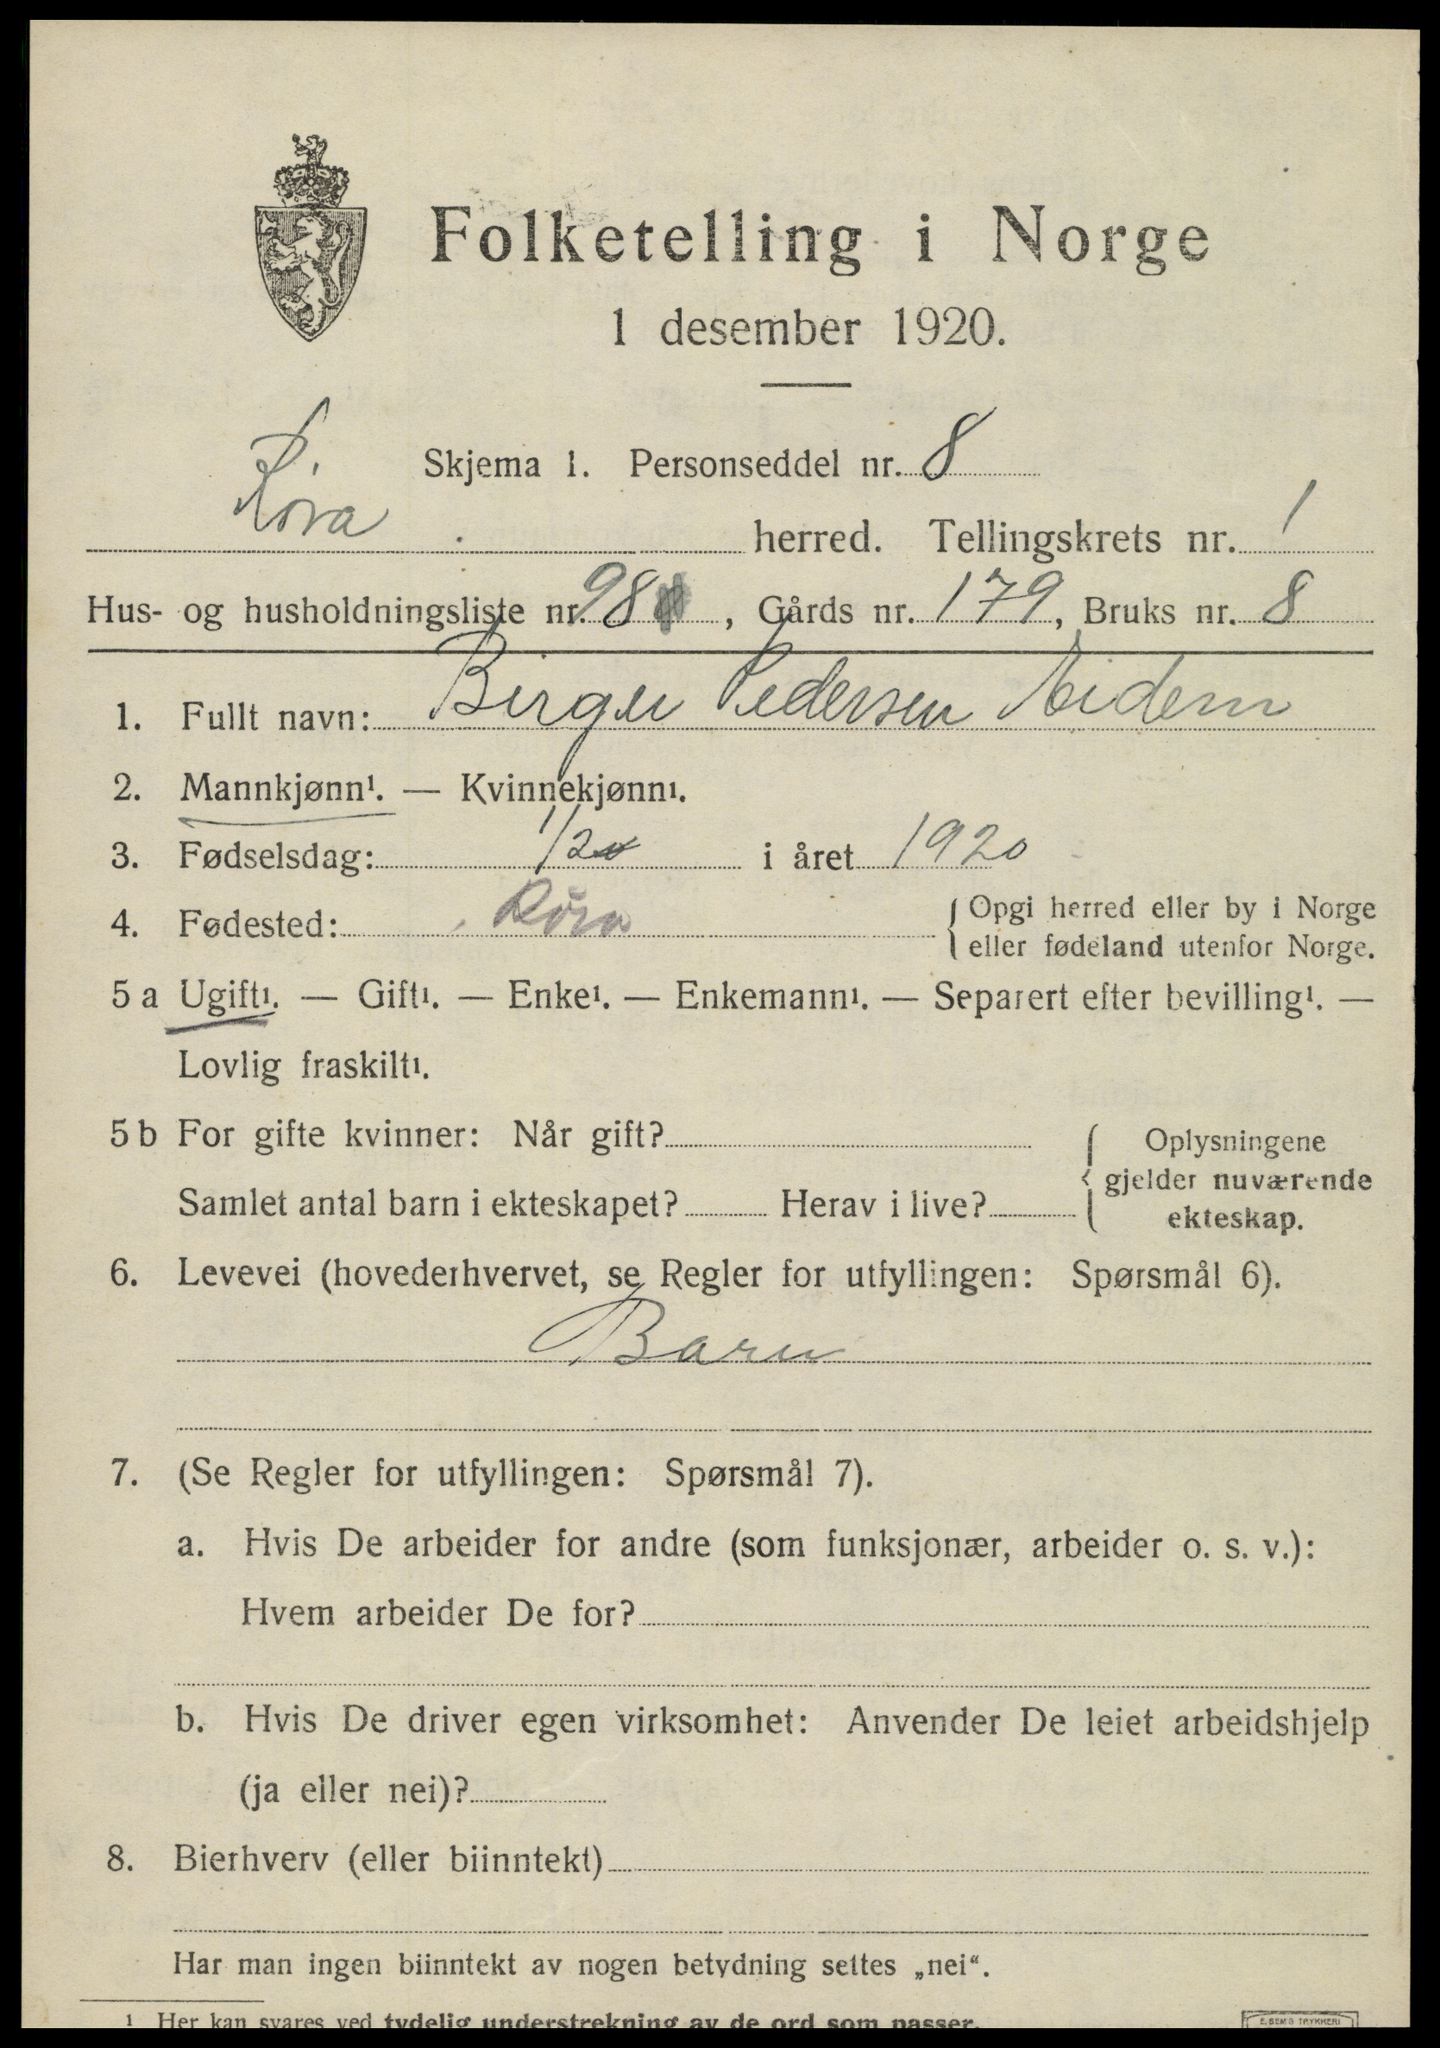 Folketelling i Norge
1 desember 1920.
Skjema 1. Personseddel nr. 8
Røra herred. Tellingskrets nr. 1
Hus- og husholdningsliste nr. 98, Gårds nr. 179, Bruks nr. 8
1. Fullt navn: Birger Pedersen Eidem
2. Mannkjønn¹. — Kvinnekjønn¹.
3. Fødselsdag: 1/2 i året 1920
4. Fødested: Røra { Opgi herred eller by i Norge
eller fødeland utenfor Norge.
5 a Ugift¹. — Gift¹. — Enke¹. — Enkemann¹. — Separert efter bevilling¹. —
Lovlig fraskilt¹.
5 b For gifte kvinner: Når gift? { Oplysningene
gjelder nuværende
Samlet antal barn i ekteskapet? Herav i live? ekteskap.
6. Levevei (hovederhvervet, se Regler for utfyllingen: Spørsmål 6).
Barn
7. (Se Regler for utfyllingen: Spørsmål 7).
a. Hvis De arbeider for andre (som funksjonær, arbeider o. s. v.):
Hvem arbeider De for?
b. Hvis De driver egen virksomhet: Anvender De leiet arbeidshjelp
(ja eller nei)?
8. Bierhverv (eller biinntekt)
Har man ingen biinntekt av nogen betydning settes „nei“.
¹ Her kan svares ved tydelig understrekning av de ord som passer.
E. SEM S TRYKKERI